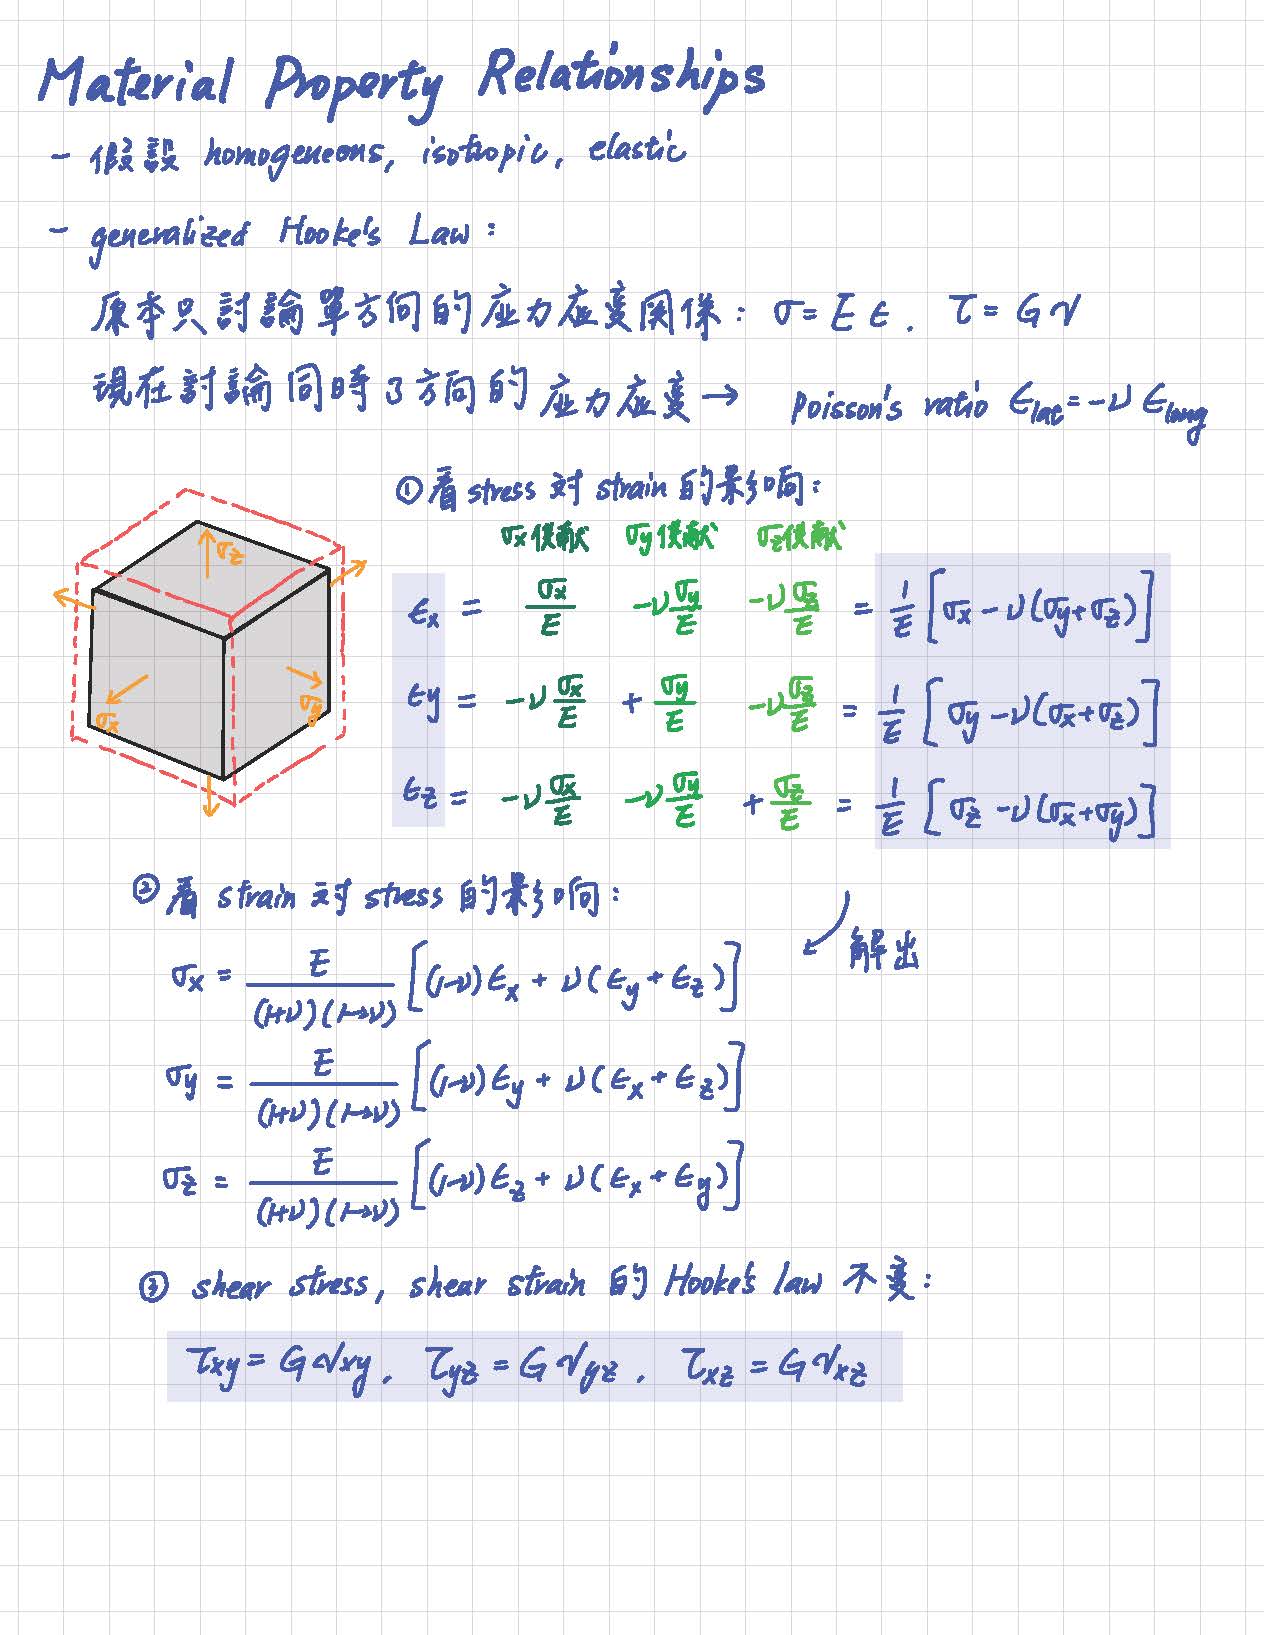 Material Property Relationships
- 假設 homogeneous, isotropic, elastic
- generalized Hooke's Law :
原本只討論單方向的应力应变関係 : σ = E ϵ . τ = G γ
現在討論同時3方向的应力应变 → poisson's ratio ϵlat = -ν ϵlong
① 看 stress 对 strain 的影响 :
σx 貢献 σy 貢献 σz 貢献
ϵx = σx/E -ν σy/E -ν σz/E = 1/E [σx - ν(σy+σz)]
ϵy = -ν σx/E + σy/E -ν σz/E = 1/E [σy - ν(σx+σz)]
ϵz = -ν σx/E -ν σy/E + σz/E = 1/E [σz - ν(σx+σy)]
σz
σx
σy
② 看 strain 对 stress 的影响 :
解出
σx = E/(1+ν)(1-2ν) [(1-ν)ϵx + ν(ϵy + ϵz)]
σy = E/(1+ν)(1-2ν) [(1-ν)ϵy + ν(ϵx + ϵz)]
σz = E/(1+ν)(1-2ν) [(1-ν)ϵz + ν(ϵx + ϵy)]
③ shear stress, shear strain 的 Hooke's law 不変 :
τxy = G γxy . τyz = G γyz . τxz = G γxz